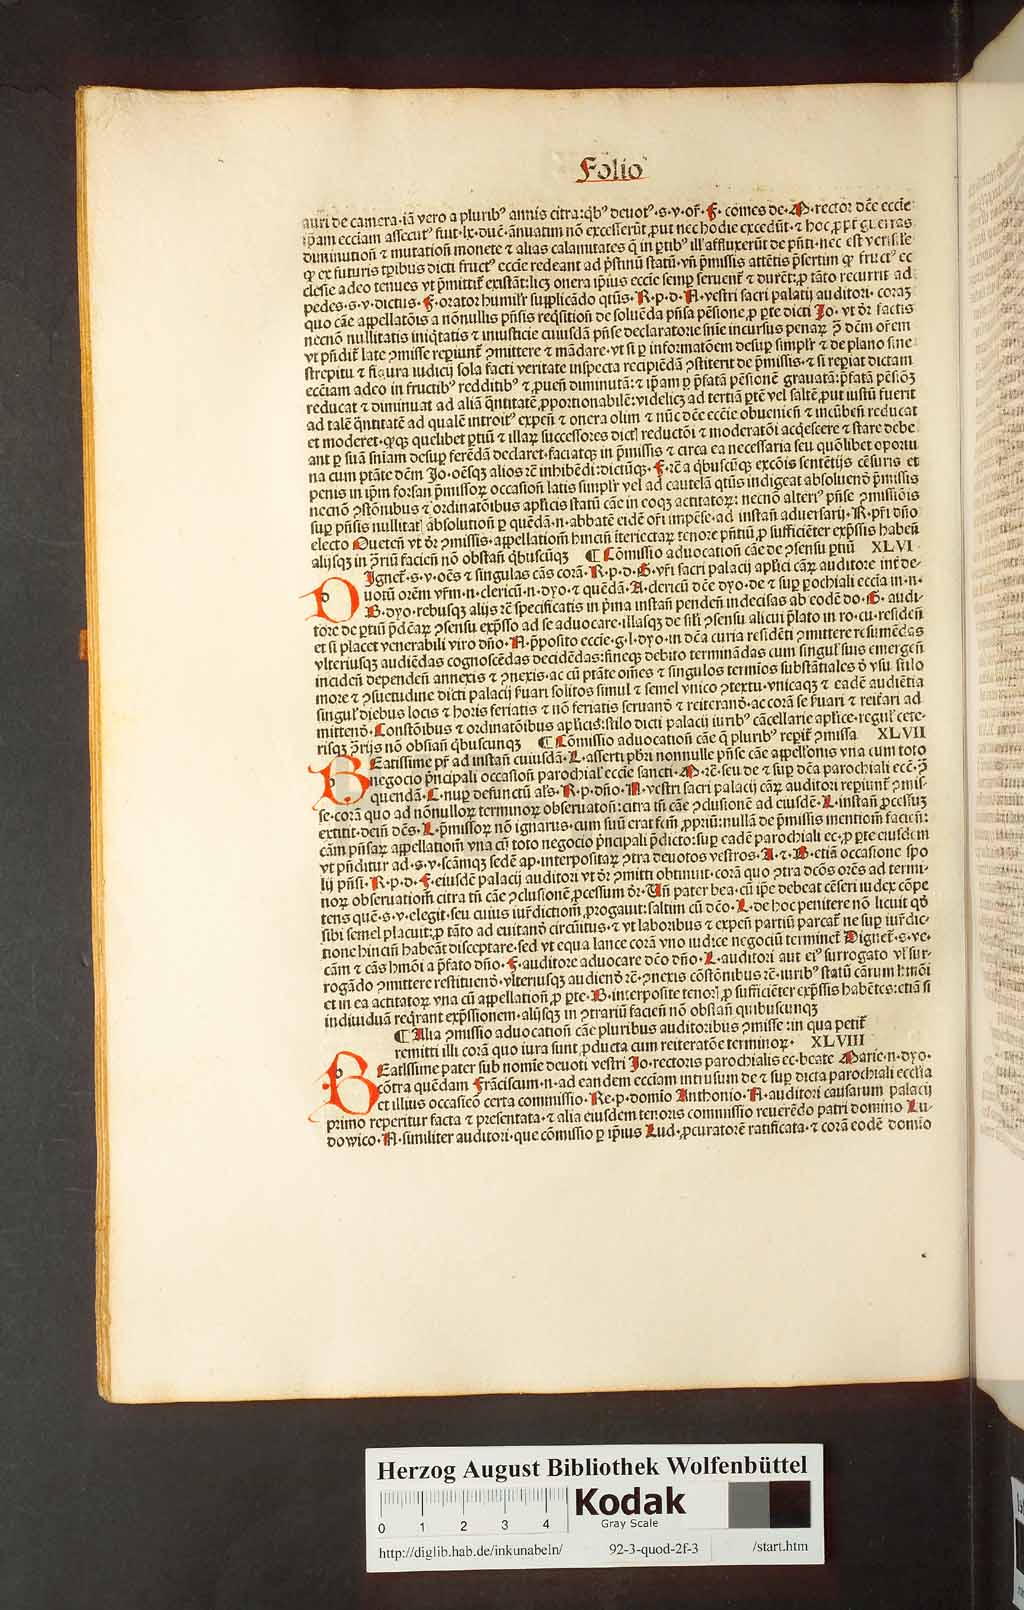 Folio
auri de camera·iā vero a pluribꝰ annis citra:qb̄ꝰ deuotꝰ·s·v·or̄·F·comes de·M·rector dc̄e eccie
ip̄am ecciam assecutꝰ fuit·lx·duc̄·ānuatim nō excesserūt ꝓut nec hodie excedūt·⁊ hoc ꝓpt̄ guerras
diminution̄ ⁊ mutation̄ monete ⁊ alias calamitates q̄ in p̄tibꝰ ill' affluxerūt de pn̄ti·nec est verisi'le
ꝙ ex futuris tp̄ibus dicti fructꝰ eccie redeant ad p̄stinū statū·vn̄ p̄missis attētis p̄sertim ꝙ fructꝰ ec
clesie adeo tenues vt p̄mittit̄ existāt:licꝫ onera ip̄ius eccie semp̄ seruent̄ ⁊ durēt:ꝓ tāto recurrit ad
pedes·s·v·dictus·F·orator humilr̄ supplicādo qtn̄s·R·p·d·A·vestri sacri palatij auditori·coraꝫ
quo cāe appellatōis a nōnullis pn̄sis reqsition̄ de soluēda pn̄sa pēsione ꝓ p̄te dicti Jo·vt ōr factis
necnō nullitatis iniqtatis ⁊ iniusticie cuiusdā pn̄se declaratorie sn̄ie incursus penaꝝ ꝯ dēm or̄em
vt pn̄dit̄ late ꝯmisse repiunt̄ ꝯmittere ⁊ mādare·vt si ꝑ informatōem desup̄ simplr̄ ⁊ de plano sine
strepitu ⁊ figura iudicij sola facti veritate inspecta recipiēdā ꝯstiterit de p̄missis·⁊ si rep̄iat dictam
eccīam adeo in fructibꝰ redditibꝰ ⁊ ꝓuen̄ diminutā:⁊ ip̄am ꝑ p̄fatā pēsionē grauatā:p̄fatā pēsiōꝫ
reducat ⁊ diminuat ad aliā qntitatē ꝓportionabilē:videlicꝫ ad tertiā p̄tē vel saltē ꝓut iustū fuerit
ad talē qntitatē ad qualē introitꝰ expen̄ ⁊ onera olim ⁊ nūc dc̄e eccie obuenien̄ ⁊ incūben̄ reducat
et moderet·qꝫqꝫ quelibet p̄tiū ⁊ illaꝝ successores dictꝭ reductōi ⁊ moderatōi acqescere ⁊ stare debe
ant ꝑ suā sn̄iam desup̄ ferēdā declaret·faciatqꝫ in p̄missis ⁊ circa ea necessaria seu quōlibet oportu
na cum ptāte dc̄m Jo·oēsqꝫ alios rē inhibēdi:dictūqꝫ·F·rē a qbuscūqꝫ excōis sentētijs cēsuris et
penis in ip̄m forsan p̄missoꝝ occasion̄ latis simplr̄ vel ad cautelā qtn̄s indigeat absoluenō p̄missis
necnō ꝯstōnibus ⁊ ordinatōibus aplicis statū cāe in eoqꝫ actitatoꝝ: necnō alteriꝰ pn̄se ꝯmissiōis
sup̄ pn̄sis nullitatꝭ absolution̄ ꝑ quēdā·n·abbatē eidē ori impēse·ad instan̄ aduersarij·R·pr̄i dn̄o
electo Oueten̄ vt ōr ꝯmissis·appellationū hincin̄ iteriectaꝝ tenore pn̄tiū ꝓ sufficiēter exp̄ssis haben̄
alijsqꝫ in ꝯriū facien̄ nō obstan̄ qbuscūqꝫ ¶ Cōmissio aduocation̄ cāe de ꝯsensu p̄tiū XLVI
DIgnet̄·s·v·oēs ⁊ singulas cās corā·R·p·d·G·vr̄i sacri palacij apl'ici cāꝝ auditore int̄ de-
uotū orēm vr̄m·n·clericū·n·dyo·⁊ quēdā·A·clericū dc̄e dyo·de ⁊ sup̄ ꝑochiali eccia in·n·
B·dyo·rebusqꝫ alijs rē specificatis in p̄ma instan̄ penden̄ indecisas ab eodē do·G·audi-
tore de p̄tiū p̄dc̄aꝝ ꝯsensu exp̄sso ad se aduocare·illasqꝫ de sil'i ꝯsensu alicui p̄lato in ro·cu·residen̄
et si placet venerabili viro dn̄o·A·p̄posito eccie·g·l·dyo·in dc̄a curia residēti ꝯmittere resumēdas
vlteriusqꝫ audiēdas cognoscēdas decidēdas:fineqꝫ debito terminādas cum singul' suis emergen̄
inciden̄ dependen̄ annexis ⁊ ꝯnexis·ac cū ptāte om̄es ⁊ singulos termios substātiales ō vsu stilo
more ⁊ ꝯsuetudine dicti palacij p̄uari solitos simul ⁊ semel vnico ꝯtextu·vnicaqꝫ ⁊ eadē audiētia
singul' diebus locis ⁊ horis feriatis ⁊ nō feriatis seruanō ⁊ reiteranō·ac corā se p̄uari ⁊ reit̄ari ad
mittenō·Constōibus ⁊ ordinatōibus aplicis:stilo dicti palacij iuribꝰ cācellarie apl'ice·regul' cete-
risqꝫ ꝯrijs nō obstan̄ qbuscunqꝫ ¶ Cōmissio aduocation̄ cāe q̄ pluribꝰ repit̄ ꝯmissa XLVII
BEatissime pr̄ ad instan̄ cuiusdā·L·asserti pbr̄i nonnulle pn̄se cāe appell'onis vna cum toto
negocio p̄ncipali occasion̄ parochial' eccie sancti·M·rē·seu de ⁊ sup̄ dc̄a parochiali ecc̄·ꝯ
quendā·C·nup̄ defunctū al's·R·p·dn̄o·A·vestri sacri palacij cāꝝ auditori repiunt̄ ꝯmis-
se·corā quo ad nōnulloꝝ terminoꝝ obseruation̄:citra tn̄ cāe ꝯclusionē ad eiusdē·L·instan̄ ꝓcessuꝫ
extitit·dein̄ dc̄s·L·p̄missoꝝ nō ignarus·cum suū erat scm̄ ꝓpriū:nullā de p̄missis mentionē facien̄:
cām pn̄saꝝ appellationū vna cū toto negocio p̄ncipali p̄dicto:sup̄ eadē parochiali ec·ꝓ p̄te eiusdem
vt pn̄ditur ad·s·v·scāmqꝫ sedē ap·interpositaꝝ ꝯtra deuotos vestros·A·⁊·B·etiā occasione spo
lij pn̄si·R·p·d·F·eiusdē palacij auditori vt ōr ꝯmitti obtinuit·corā quo ꝯtra dc̄os orēs ad termi-
noꝝ obseruationē citra tn̄ cāe ꝯclusionē ꝓcessum ōr·Vn̄ pater bea·cū ip̄e debeat cēseri iudex cōpe
tens quē·s·v·elegit·seu cuius iur̄dictionē ꝓrogauit:saltim cū dc̄o·L·de hoc penitere nō licuit qō
sibi semel placuit:ꝓ tāto ad euitanō circuitus·⁊ vt laboribus ⁊ expen̄ partiū parcat̄ ne sup̄ iur̄dic-
tione hincin̄ habeāt disceptare·sed vt equa lance corā vno iudice negociū terminet̄ Dignet̄·s·v·
cām ⁊ cās hmōi a p̄fato dn̄o·F·auditore aduocare dc̄o dn̄o·L·auditori aut eiꝰ surrogato vl' sur-
rogādo ꝯmittere restituenō·vlteriusqꝫ audienō rē·ꝯnexis cōstōnibus rē·iuribꝰ statū cārum hmōi
et in ea actitatoꝝ vna cū appellation̄ ꝓ p̄te·B·interposite tenorꝭ ꝓ sufficiēter exp̄ssis habētes:etiā si
indiuiduā reqrant exp̄ssionem·alijsqꝫ in ꝯtrariū facien̄ nō obstan̄ quibuscunqꝫ
¶ Alia ꝯmissio aduocation̄ cāe pluribus auditoribus ꝯmisse:in qua petit̄
remitti illi corā quo iura sunt ꝓducta cum reiteratōe terminoꝝ· XLVIII
BEatissime pater sub nomīe deuoti vestri Jo·rectoris parochialis ec·beate Marie·n·dyo·
cōtra quēdam Frāciscum·n·ad eandem ecciam intrusum de ⁊ sup dicta parochiali ecclīa
et illius occasiōe certa commissio·Re·p·domio Anthonio·A·auditori causarum palacij
primo reperitur facta ⁊ presentata·⁊ alia eiusdem tenoris commissio reuerēdo patri domino Lu-
dowico·A·similiter auditori·que cōmissio ꝑ ip̄ius Lud·ꝓcuratorē ratificata·⁊ corā eodē domīo
Herzog August Bibliothek Wolfenbüttel
0 1 2 3 4
Kodak
Gray Scale
http://diglib.hab.de/inkunabeln/ 92-3-quod-2f-3 /start.htm